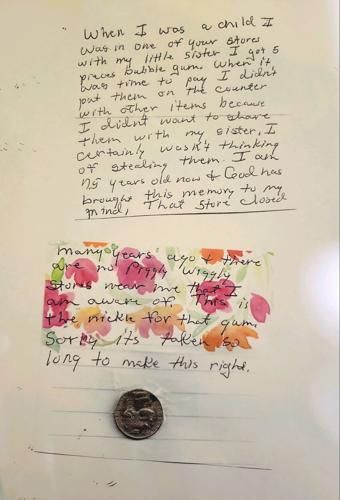 When I was a child I
was in one of your stores
with my little sister I got 5
pieces bubble gum. When it
was time to pay I didn't
put them on the counter
with other items because
I didn't want to share
them with my sister, I
certainly wasn't thinking
of stealing them. I am
75 years old now & God has
brought this memory to my
mind, That store closed
many years ago & there
are no Piggly Wiggly
stores near me that I
am aware of. This is
the nickle for that gum.
Sorry its taken so
long to make this right.